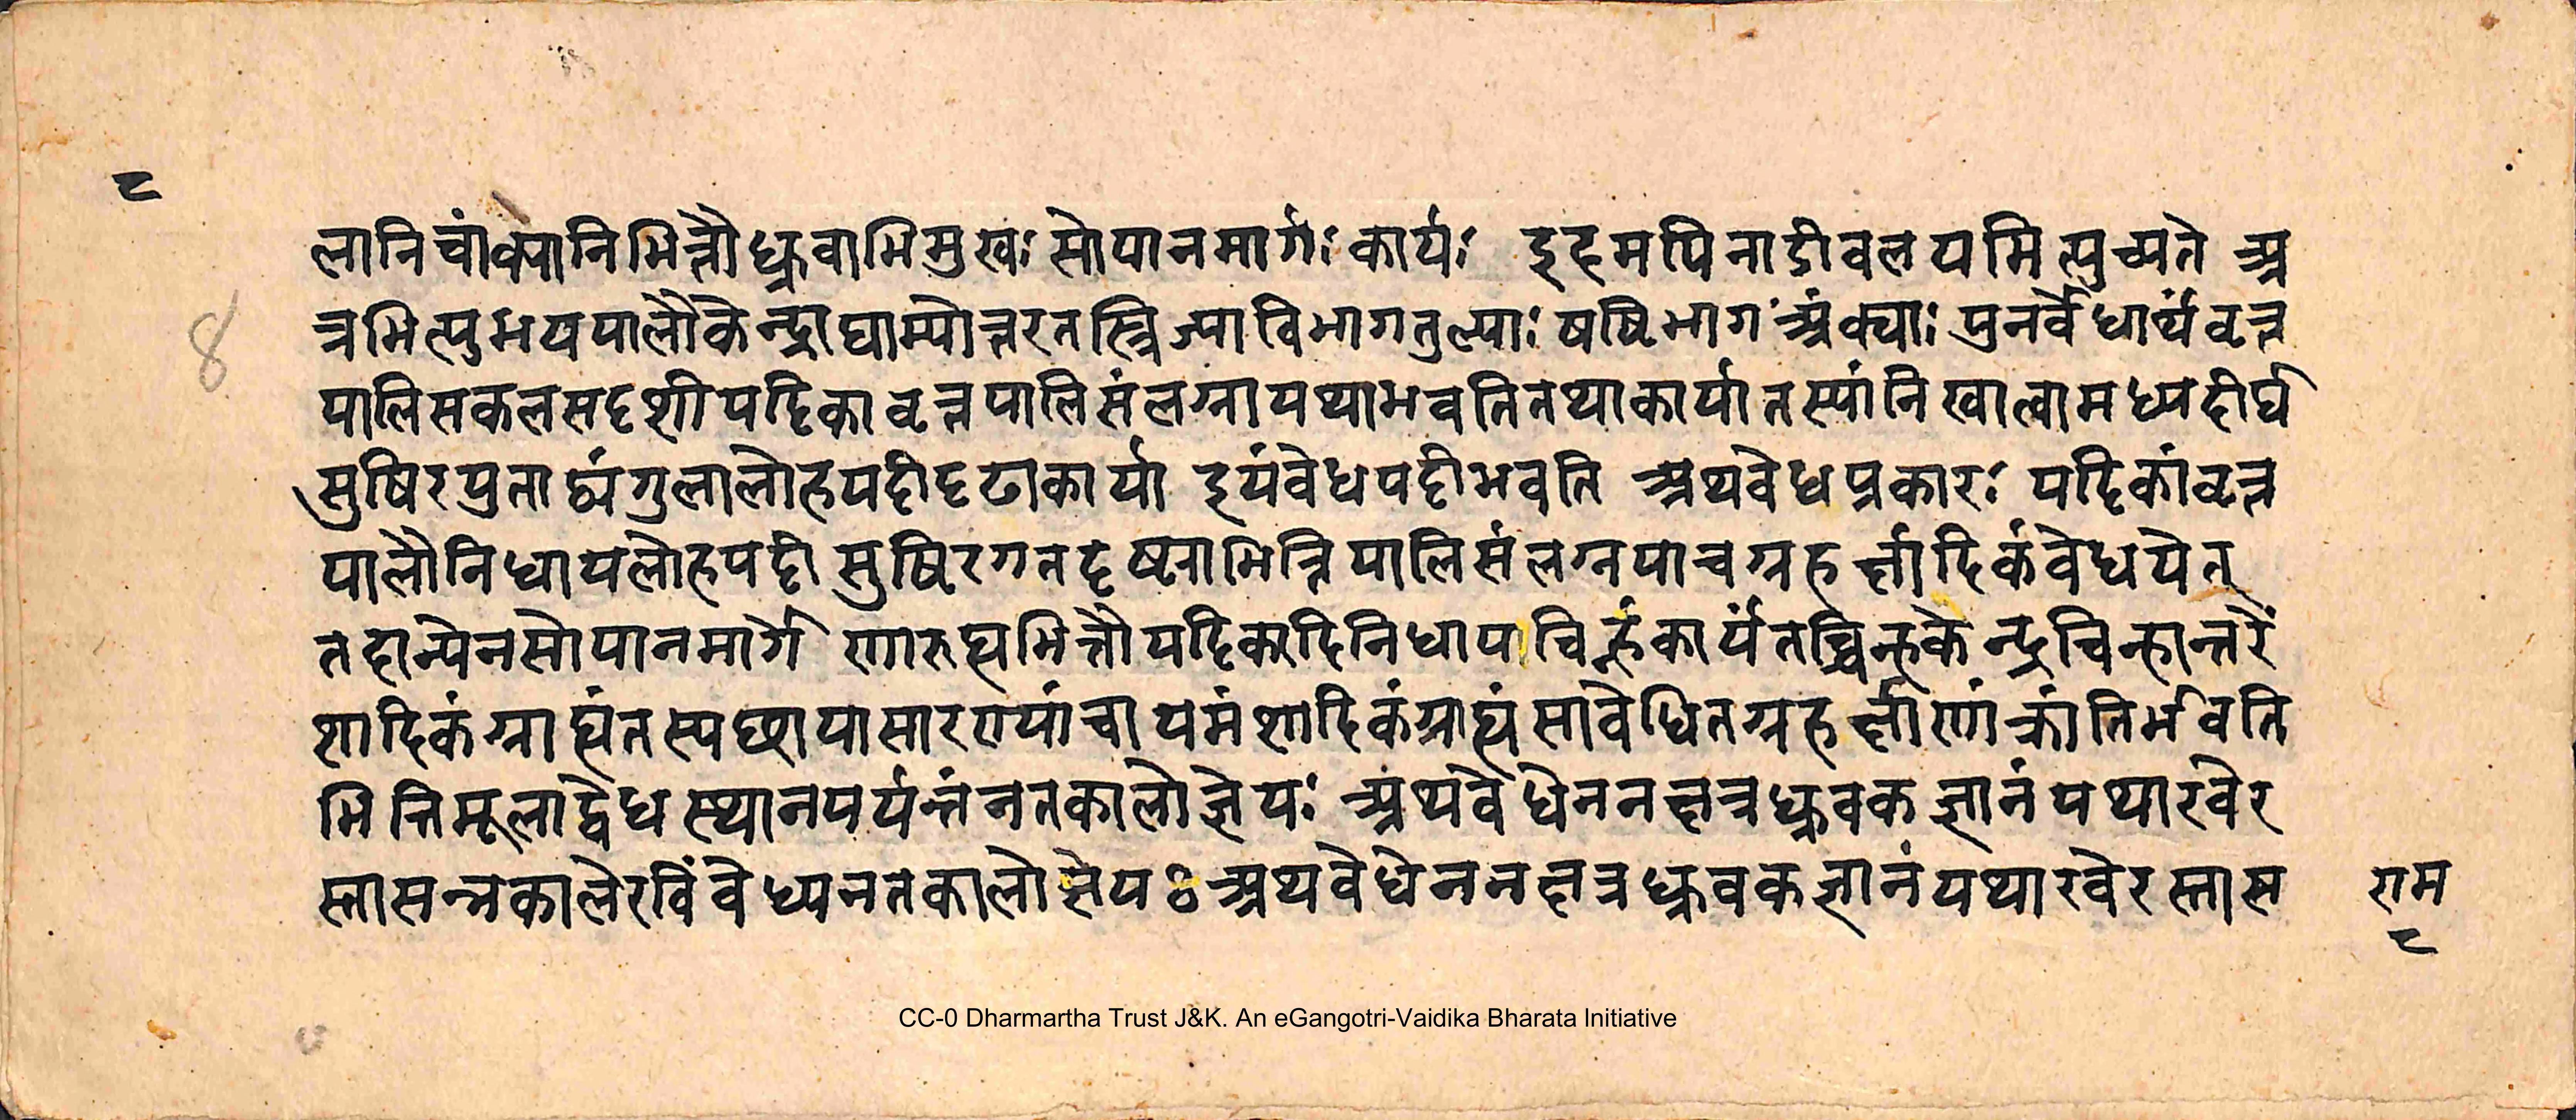 ८
लानि चांक्यानि भित्तौ ध्रुवाभिमुखः सोपानमार्गः कार्यः इदमपि नाडीवलयमित्युच्यते अ
त्रभित्युभयपालौ केन्द्राद्याम्योत्तरतस्त्रिज्याविभागतुल्याः षष्टिभाग अंक्याः पुनर्वेधार्थं वृत्त
पालिसकलसदृशी पट्टिका वृत्तपालिसंलग्ना यथा भवति तथा कार्या तस्यां निखात्वा मध्यदीर्घ
सुषिरयुता द्व्यंगुला लोहपट्टी दृढा कार्या इयं वेधपट्टी भवति अथ वेधप्रकारः पट्टिकां वृत्त
पालौ निधाय लोहपट्टी सुषिरगतदृष्ट्या भित्ति पालिसंलग्नया च ग्रहर्क्षादिकं वेधयेत्
तदान्येन सोपानमार्गे णारुह्य भित्तौ पट्टिकादि निधाय चिह्नं कार्यं तच्चिन्हकेन्द्रचिन्हान्तरें
शादिकं ग्राह्यं तस्य छायासारण्यां चा यमंशादिकं ग्राह्यं सा वेधितग्रहर्क्षाणां क्रांतिर्भवति
भित्तिमूलाद्वेधस्थानपर्यन्तं नतकालो ज्ञेयः अथ वेधेन नक्षत्रध्रुवकज्ञानं यथा रवेर
स्तासन्नकाले रविं वेध्य नतकालो ज्ञेयः अथ वेधेन नक्षत्रध्रुवकज्ञानं यथा रवेरस्तास
राम
८
8
CC-0 Dharmartha Trust J&K. An eGangotri-Vaidika Bharata Initiative